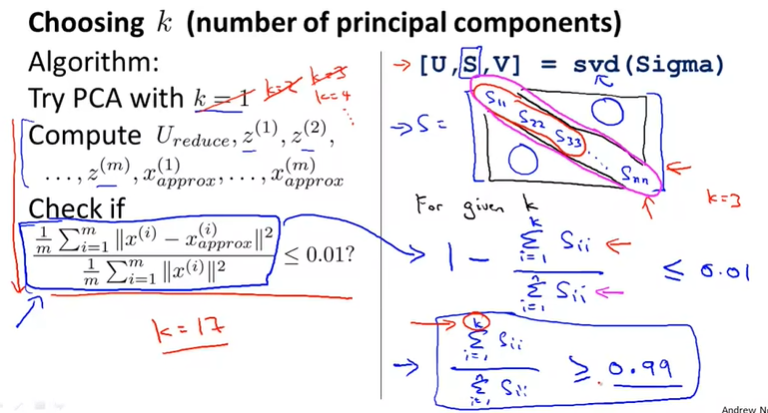 Choosing k (number of principal components)
Algorithm:
Try PCA with k = 1 k=2 k=3
k=4
Compute U_reduce, z^(1), z^(2),
..., z^(m), x_approx^(1), ..., x_approx^(m)
Check if
\frac{\frac{1}{m} \sum_{i=1}^{m} ||x^(i) - x_approx^(i)||^2}{\frac{1}{m} \sum_{i=1}^{m} ||x^(i)||^2} ≤ 0.01?
k=17
→ [U,S,V] = svd(Sigma)
→ S =
S11
S22
S33
...
Snn
k=3
For given k
1 - \frac{\sum_{i=1}^{k} Sii}{\sum_{i=1}^{n} Sii} ≤ 0.01
→ \frac{\sum_{i=1}^{k} Sii}{\sum_{i=1}^{n} Sii} ≥ 0.99